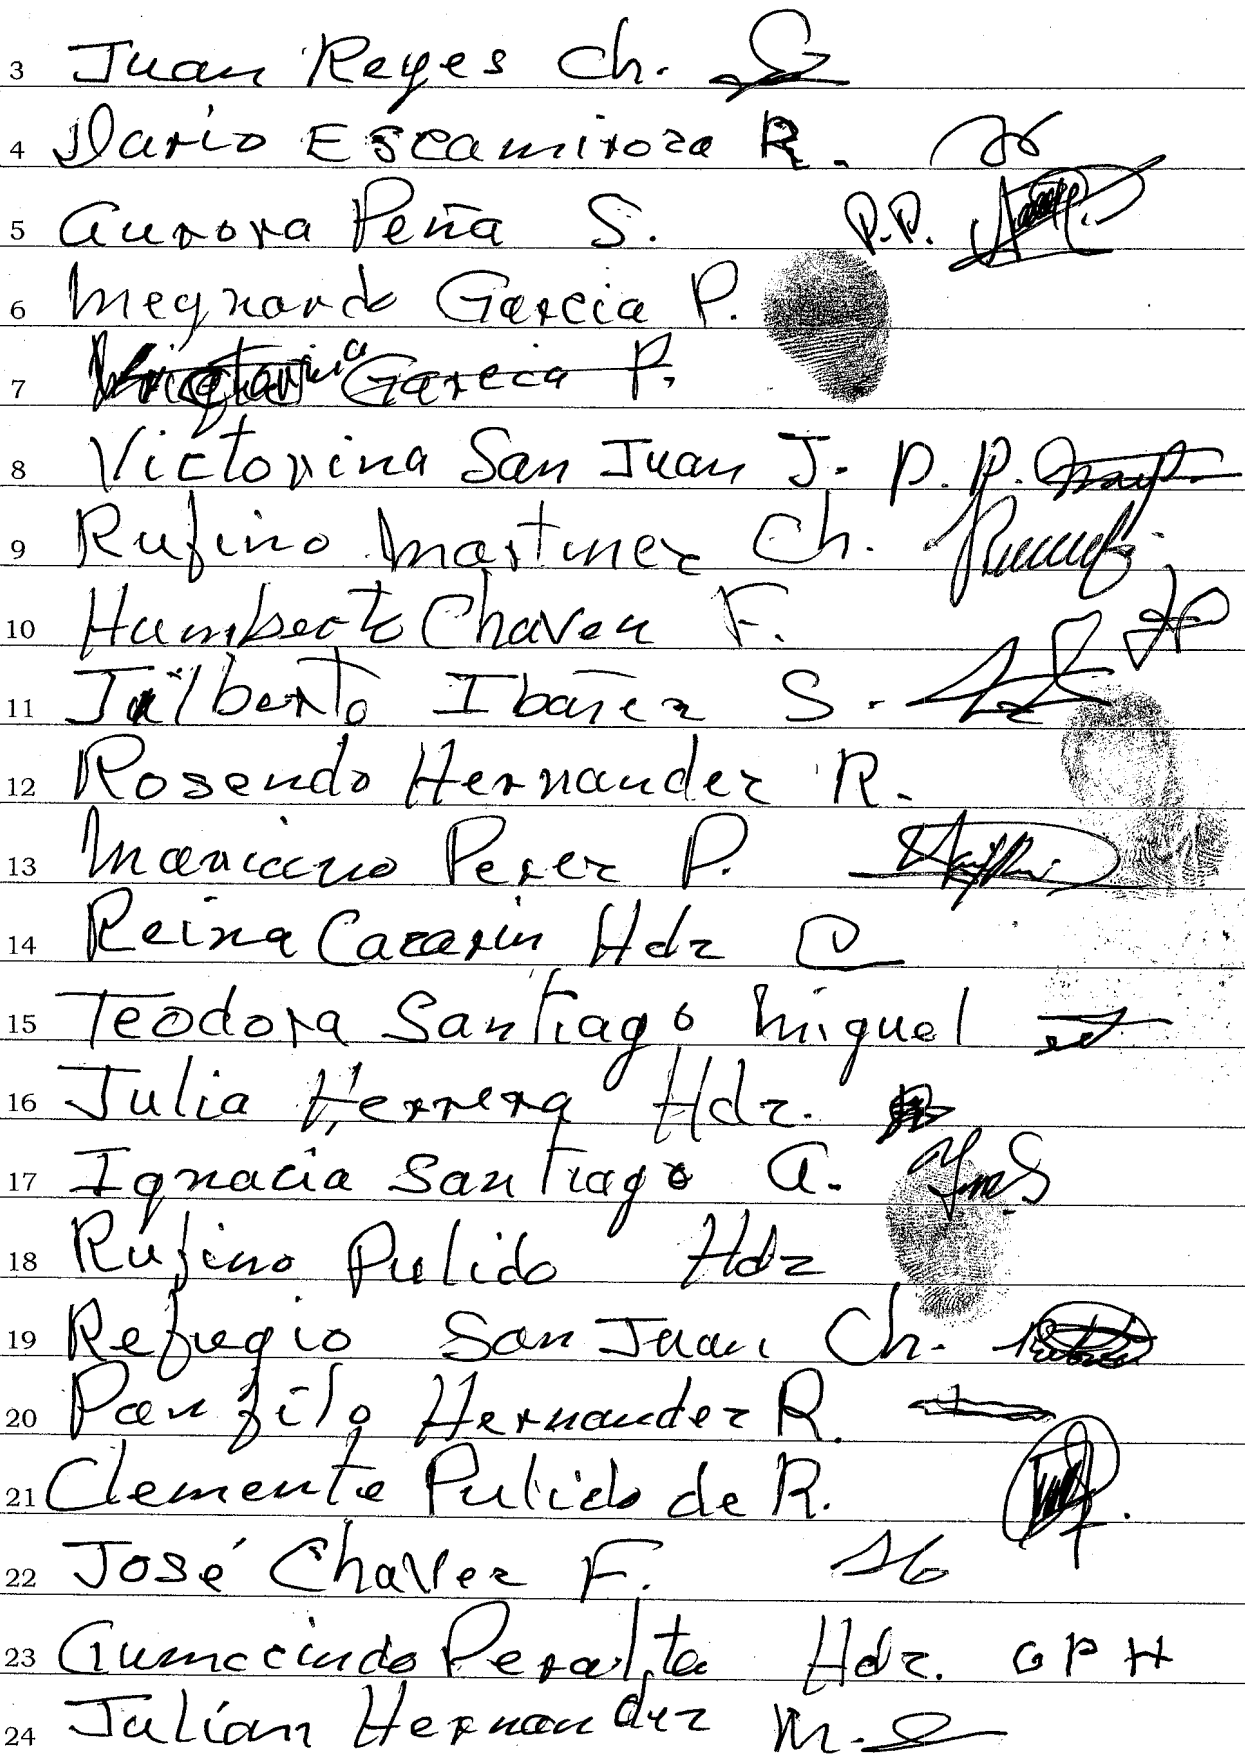 3 Juan Reyes Ch.
4 Dario Escamiroza R.
5 Aurora Peña S. P.P.
6 Meynardo Garcia P.
7 Garcia P.
8 Victorina San Juan J. P.P.
9 Rufino Martinez Ch.
10 Humberto Chavez F.
11 Jilberto Ibañez S.
12 Rosendo Hernandez R.
13 Perez P.
14 Reina Cazarin Hdz
15 Teodora Santiago Miguel
16 Julia Herrera Hdz.
17 Ignacia Santiago A.
18 Rufino Pulido Hdz
19 Refugio San Juan Ch.
20 Panfilo Hernandez R.
21 Clemente Pulido de R.
22 José Chavez F.
23 Gumecindo Peralta Hdz. G P H
24 Julián Hernandez M.